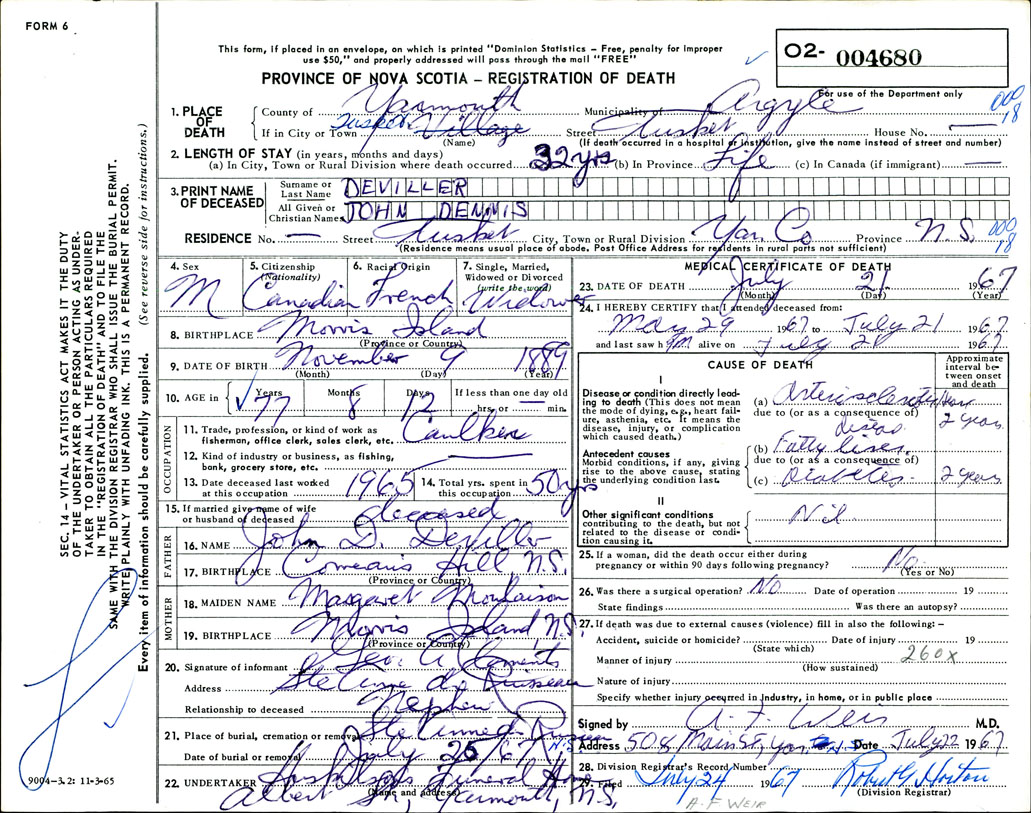 FORM 6
This form, if placed in an envelope, on which is printed "Dominion Statistics – Free, penalty for improper
use $50," and properly addressed will pass through the mail "FREE"
PROVINCE OF NOVA SCOTIA – REGISTRATION OF DEATH
O2- 004680
For use of the Department only
000
18
1. PLACE OF DEATH
County of Yarmouth Municipality of Argyle
If in City or Town Tusket Village Street Tusket House No. —
(Name) (If death occurred in a hospital or institution, give the name instead of street and number)
2. LENGTH OF STAY (in years, months and days)
(a) In City, Town or Rural Division where death occurred 32 yrs (b) In Province Life (c) In Canada (if immigrant) —
3. PRINT NAME OF DECEASED
Surname or Last Name DEVILLER
All Given or Christian Names JOHN DENNIS
RESIDENCE No. — Street Tusket City, Town or Rural Division Yar. Co Province N.S.
000
18
*(Residence means usual place of abode. Post Office Address for residents in rural parts not sufficient)
4. Sex M
5. Citizenship (Nationality) Canadian
6. Racial Origin French
7. Single, Married, Widowed or Divorced (write the word) Widower
8. BIRTHPLACE Morris Island
(Province or Country)
9. DATE OF BIRTH November 9 1889
(Month) (Day) (Year)
10. AGE in Years 77 Months 8 Days 12 If less than one day old
hrs. or — min.
OCCUPATION
11. Trade, profession, or kind of work as
fisherman, office clerk, sales clerk, etc. Caulker
12. Kind of industry or business, as fishing,
bank, grocery store, etc. —
13. Date deceased last worked
at this occupation 1965
14. Total yrs. spent in
this occupation 50 yrs
15. If married give name of wife
or husband of deceased deceased
FATHER
16. NAME John D. Deviller
17. BIRTHPLACE Comeaus Hill, N.S.
(Province or Country)
MOTHER
18. MAIDEN NAME Margaret Moulaison
19. BIRTHPLACE Morris Island N.S.
(Province or Country)
20. Signature of informant Geo. A Clements
Address Ste Anne du Ruisseau
Relationship to deceased Nephew
21. Place of burial, cremation or removal Ste Anne du Ruisseau N.S
Date of burial or removal July 25/67
22. UNDERTAKER Funeral Home
(Name and address)
Albert St, Yarmouth, N.S,
MEDICAL CERTIFICATE OF DEATH
23. DATE OF DEATH July 21 1967
(Month) (Day) (Year)
24. I HEREBY CERTIFY that I attended deceased from:
May 29 1967 to July 21 1967
and last saw him alive on July 21 1967
CAUSE OF DEATH
Approximate interval between onset and death
I
Disease or condition directly leading to death (This does not mean the mode of dying, e.g., heart failure, asthenia, etc. It means the disease, injury, or complication which caused death.)
(a) Arteriosclerotic Hear
due to (or as a consequence of) 2 years
diseas
Antecedent causes
Morbid conditions, if any, giving rise to the above cause, stating the underlying condition last.
(b) Fatty liver
due to (or as a consequence of)
(c) Diabetes. 2 years
II
Other significant conditions
contributing to the death, but not related to the disease or condition causing it.
Nil
25. If a woman, did the death occur either during
pregnancy or within 90 days following pregnancy? No
(Yes or No)
26. Was there a surgical operation? No Date of operation 19
State findings Was there an autopsy?
27. If death was due to external causes (violence) fill in also the following: –
Accident, suicide or homicide? Date of injury 19
(State which)
260X
Manner of injury
(How sustained)
Nature of injury
Specify whether injury occurred in industry, in home, or in public place
Signed by A. F. Weir M.D.
Address 508 Main St, Yar Date July 22 1967
28. Division Registrar's Record Number
29. Filed July 24 1967 Robert G Horton
(Division Registrar)
A. F WEIR
9004-3.2: 11-3-65
SEC. 14 – VITAL STATISTICS ACT MAKES IT THE DUTY
OF THE UNDERTAKER OR PERSON ACTING AS UNDER-
TAKER TO OBTAIN ALL THE PARTICULARS REQUIRED
IN THE "REGISTRATION OF DEATH" AND TO FILE THE
SAME WITH THE DIVISION REGISTRAR WHO SHALL ISSUE THE BURIAL PERMIT.
WRITE PLAINLY WITH UNFADING INK. THIS IS A PERMANENT RECORD.
Every item of information should be carefully supplied. (See reverse side for instructions.)